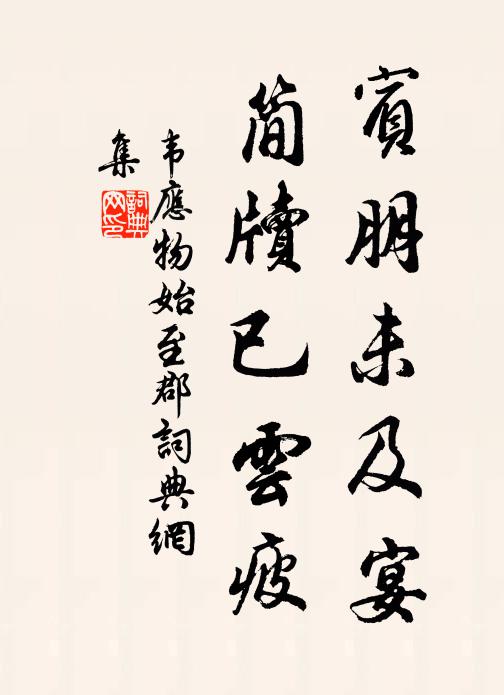 賓朋未及宴
簡牘已雲疲
韦應物始至郡詞典網
集
詞典
网印